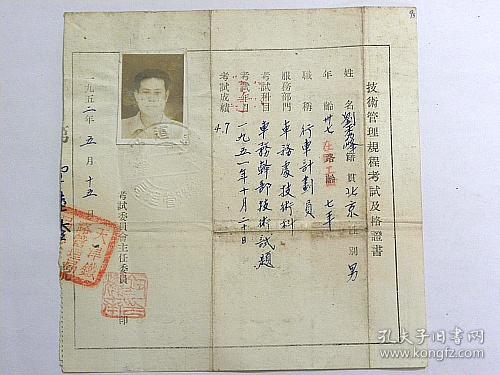 技術管理規程考試及格證書
姓名 劉秀峰 籍貫 北京 性別 男
年齡 卅七 在路工齡 七年
職稱 行車計劃員
服務部門 車務處技術科
考試科目 車務幹部技術試題
考試年月 一九五一年十月二十日
考試成績 4.7
考試委員會主任委員 印
一九五二年 五月十五日
孔夫子旧书网
kongfz.com